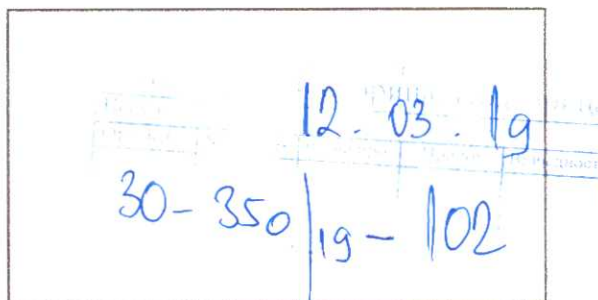 12.03.19
30-350/19-102